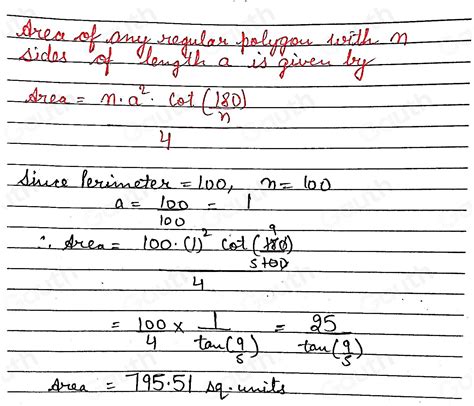 Area of any regular polygon with n
sides of length a is given by
Area = n·a²· cot(180/n)
4
Since Perimeter = 100, n = 100
a = 100/100 = 1
∴ Area = 100·(1)² cot(180/500)
9
5
4
= 100/4 × 1/tan(9/5) = 25/tan(9/5)
Area = 795.51 sq. units